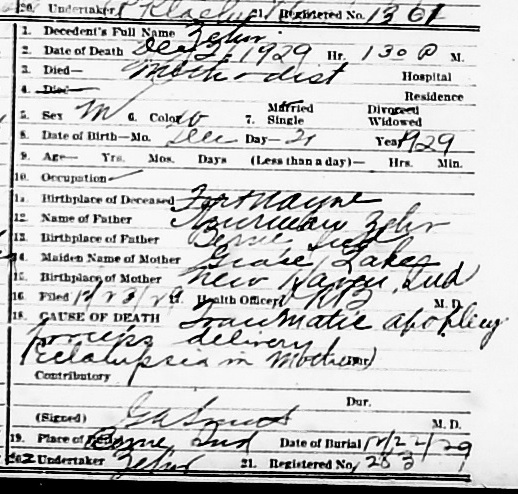 20. Undertaker 21. Registered No. 1361
1. Decedent's Full Name Zehr
2. Date of Death Dec 21 1929 Hr. 130 P M.
3. Died— Methodist Hospital
4. Died— Residence
5. Sex M 6. Color W 7. Married Single Divorced Widowed
8. Date of Birth—Mo. Dec Day— 21 Year 1929
9. Age— Yrs. Mos. Days (Less than a day)— Hrs. Min.
10. Occupation —
11. Birthplace of Deceased Fort Wayne
12. Name of Father Zehr
13. Birthplace of Father Berne Ind
14. Maiden Name of Mother Grace
15. Birthplace of Mother New Haven Ind
16. Filed 12/23/29 17. Health Officer M. D.
18. CAUSE OF DEATH Traumatic apoplexy
forceps delivery
(eclampsia in Mother) Dur.
Contributory
Dur.
(Signed) M. D.
19. Place of Burial Berne Ind Date of Burial 12/22/29
20. Undertaker Zehr 21. Registered No.